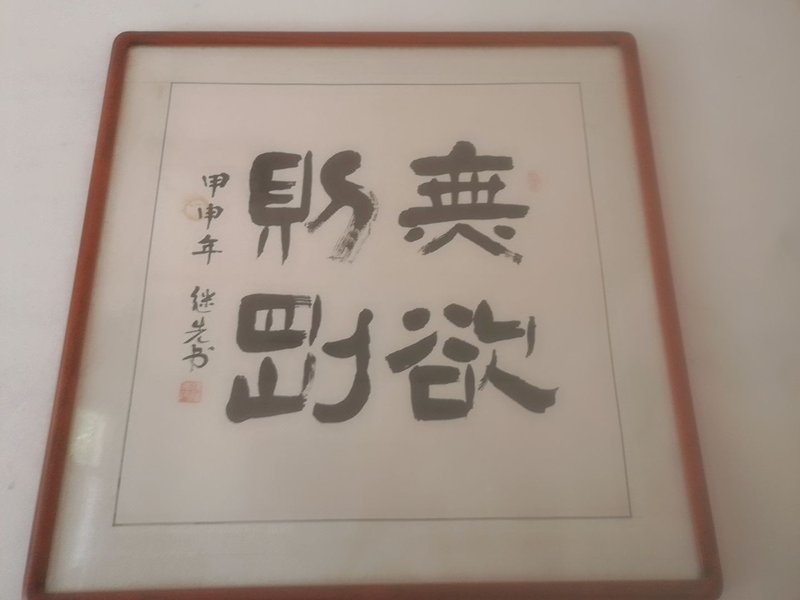 無欲
則剛
甲申年 继先书